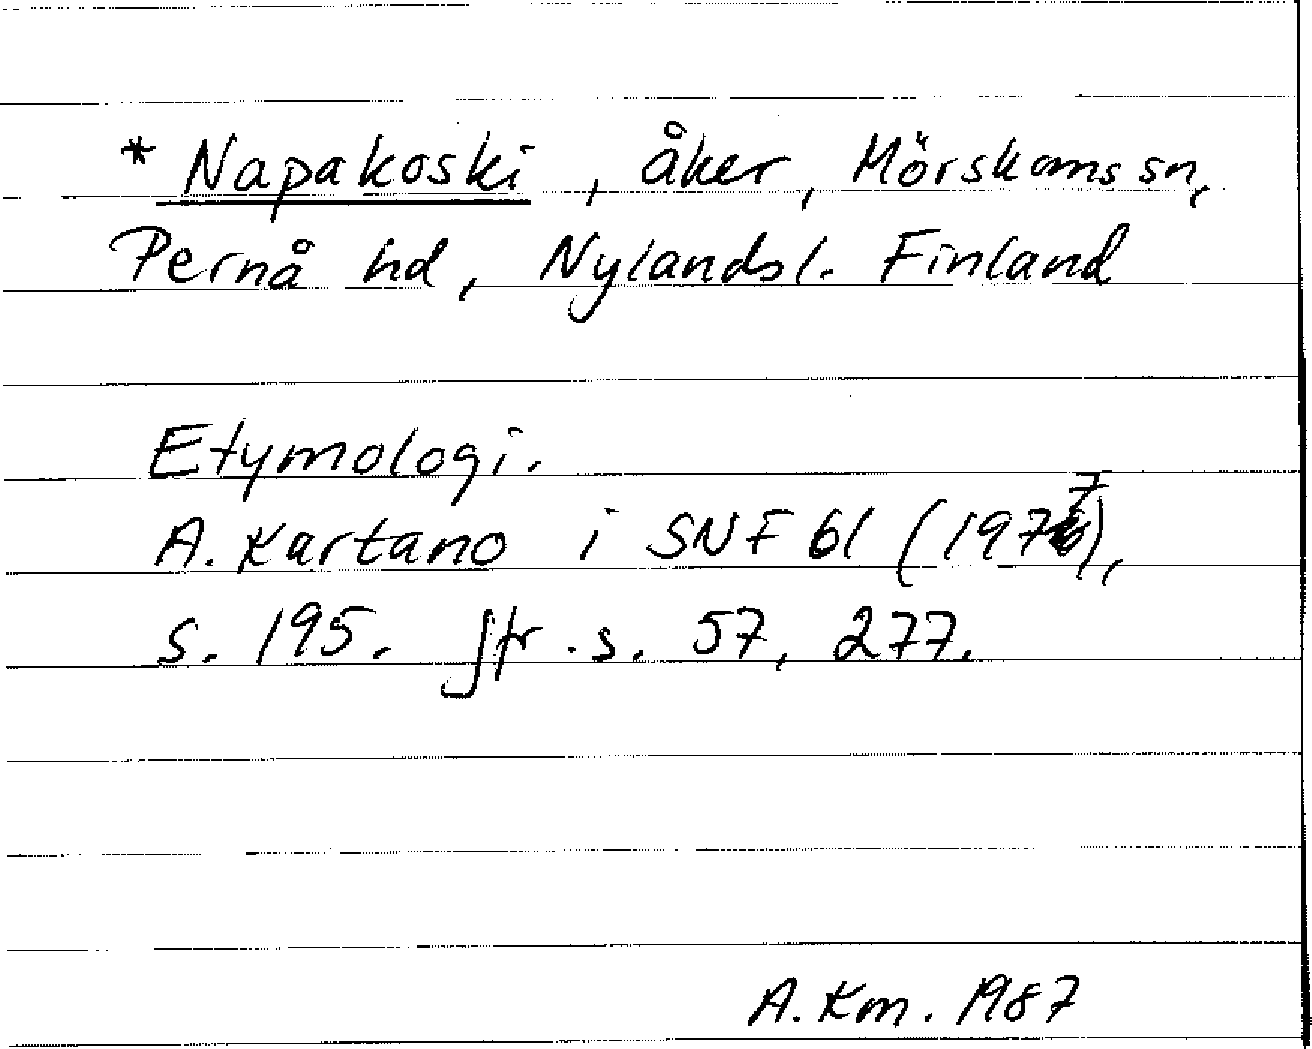 * Napakoski, åker, Mörskoms sn,
Pernå hd, Nylands l. Finland
Etymologi.
A. Kartano i SNF 61 (1977),
s. 195. Jfr. s. 57, 277.
A. Km. 1987